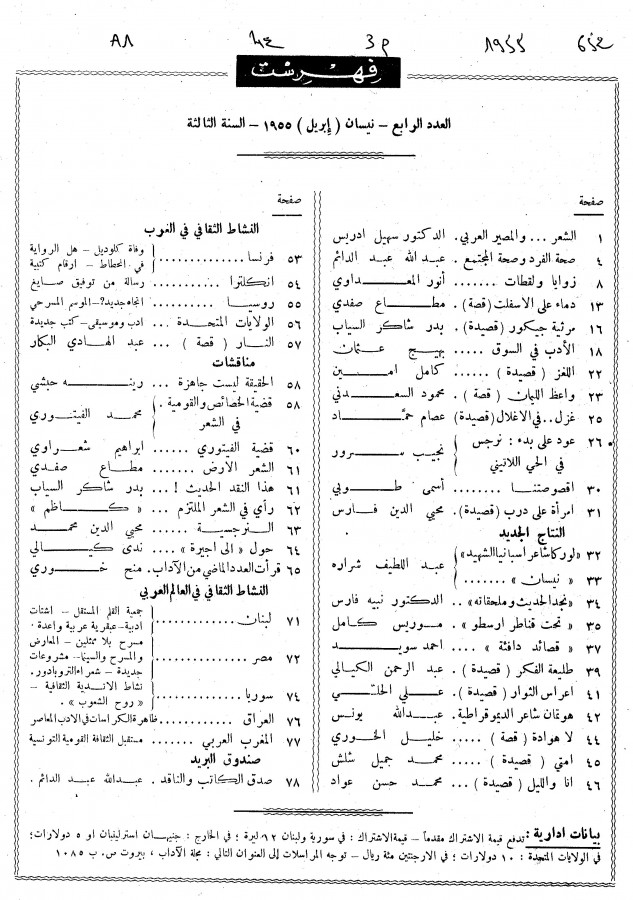 A8 3م 1955
فهرست
العدد الرابع – نيسان ( إبريل ) ١٩٥٥ – السنة الثالثة
صفحة
١ الشعر ... والمصير العربي. الدكتور سهيل ادريس
٤ صحة الفرد وصحة المجتمع . عبد الله عبد الدائم
٨ زوايا ولقطات ....... أنور المعداوي
١٣ دماء على الاسفلت (قصة) . مطاع صفدي
١٦ مرثية جيكور (قصيدة). بدر شاكر السياب
١٨ الأدب في السوق ..... بهيج عثمان
٢٢ اللغز ( قصيدة ) ..... كامل امين
٢٣ واعظ اللمان ( قصة ) . محمود السعدني
٢٥ غزل..في الاغلال (قصيدة) عصام حمّاد
٢٦ عود على بدء : نرجس في الحي اللاتيني } نجيب سرور
٣٠ اقصوصتنا ........ أسمى طوبي
٣١ امرأة على درب (قصيدة). محيي الدين فارس
النتاج الجديد
٣٢ «لوركا شاعر اسبانيا الشهيد»
٣٣ « نيسان » ....... } عبد اللطيف شراره
٣٤ «نجد الحديث وملحقاته».. الدكتور نبيه فارس
٣٥ « تحت قناطر ارسطو ». موريس كامل
٣٧ « قصائد دافئة » .... احمد سويد
٣٩ طليعة الفكر ( قصيدة ). عبد الرحمن الكيالي
٤١ اعراس الثوار ( قصيدة ). علي الحلي
٤٢ هوتمان شاعر الديموقراطية. عبدالله يونس
٤٤ لا هوادة ( قصة ) ... خليل الخوري
٤٥ امتي ( قصيدة ) ..... محمد جميل شلش
٤٦ انا والليل ( قصيدة ) ... محمد حسن عواد
صفحة
النشاط الثقافي في الغرب
٥٣ فرنسا ............ } وفاة كلوديل – هل الرواية في انحطاط – ارقام كتبية
٥٤ انكلترا ......... رسالة من توفيق صايغ
٥٥ روسيا ......... اتجاه جديد؟–الموسم المسرحي
٥٦ الولايات المتحدة ... ادب وموسيقى – كتب جديدة
٥٧ النار ( قصة ) ... عبد الهادي البكار
مناقشات
٥٨ الحقيقة ليست جاهزة ... رينه حبشي
٥٨ قضية الخصائص والقومية . في الشعر } محمد الفيتوري
٦٠ قضية الفيتوري ...... ابراهيم شعراوي
٦١ الشعر الارض ....... مطاع صفدي
٦١ هذا النقد الحديث ! ... بدر شاكر السياب
٦٢ رأي في الشعر الملتزم ... « كاظم »
٦٣ النرجسية ...... محيي الدين محمد
٦٤ حول « الى اجيرة » .... ندى كيالي
٦٥ قرأت العدد الماضي من الآداب. منح خوري
النشاط الثقافي في العالم العربي
٧١ لبنان .......... } جمعية القلم المستقل – اشتات ادبية–عبقرية عربية واعدة .
٧٢ مصر .......... } مسرح بلا ممثلين – المعارض والمسرح والسينما– مشروعات جديدة – شعراء التروبادور.
٧٤ سوريا .......... } نشاط الاندية الثقافية – « روح الشعوب » .
٧٦ العراق ........... ظاهرة الكراسات في الادب المعاصر
٧٧ المغرب العربي ...... مستقبل الثقافة القومية التونسية
صندوق البريد
٧٨ صدق الكاتب والناقد . عبدالله عبد الدائم .
بيانات ادارية : تدفع قيمة الاشتراك مقدماً – قيمة الاشتراك : في سورية ولبنان ١٢ ليرة ؛ في الخارج : جنيهان استرلينيان او ٥ دولارات؛
في الولايات المتحدة : ١٠ دولارات ؛ في الارجنتين مئة ريال – توجه المراسلات إلى العنوان التالي : مجلة الآداب ، بيروت ص. ب ١٠٨٥